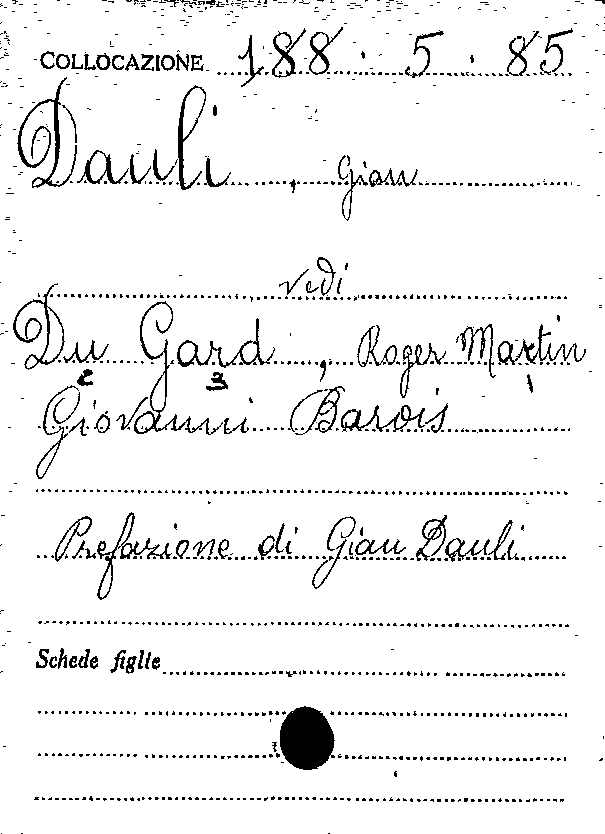 COLLOCAZIONE 188.5.85
Dauli, Gian
vedi
Du Gard, Roger Martin
2 3 1
Giovanni Barois
Prefazione di Gian Dauli
Schede figlie